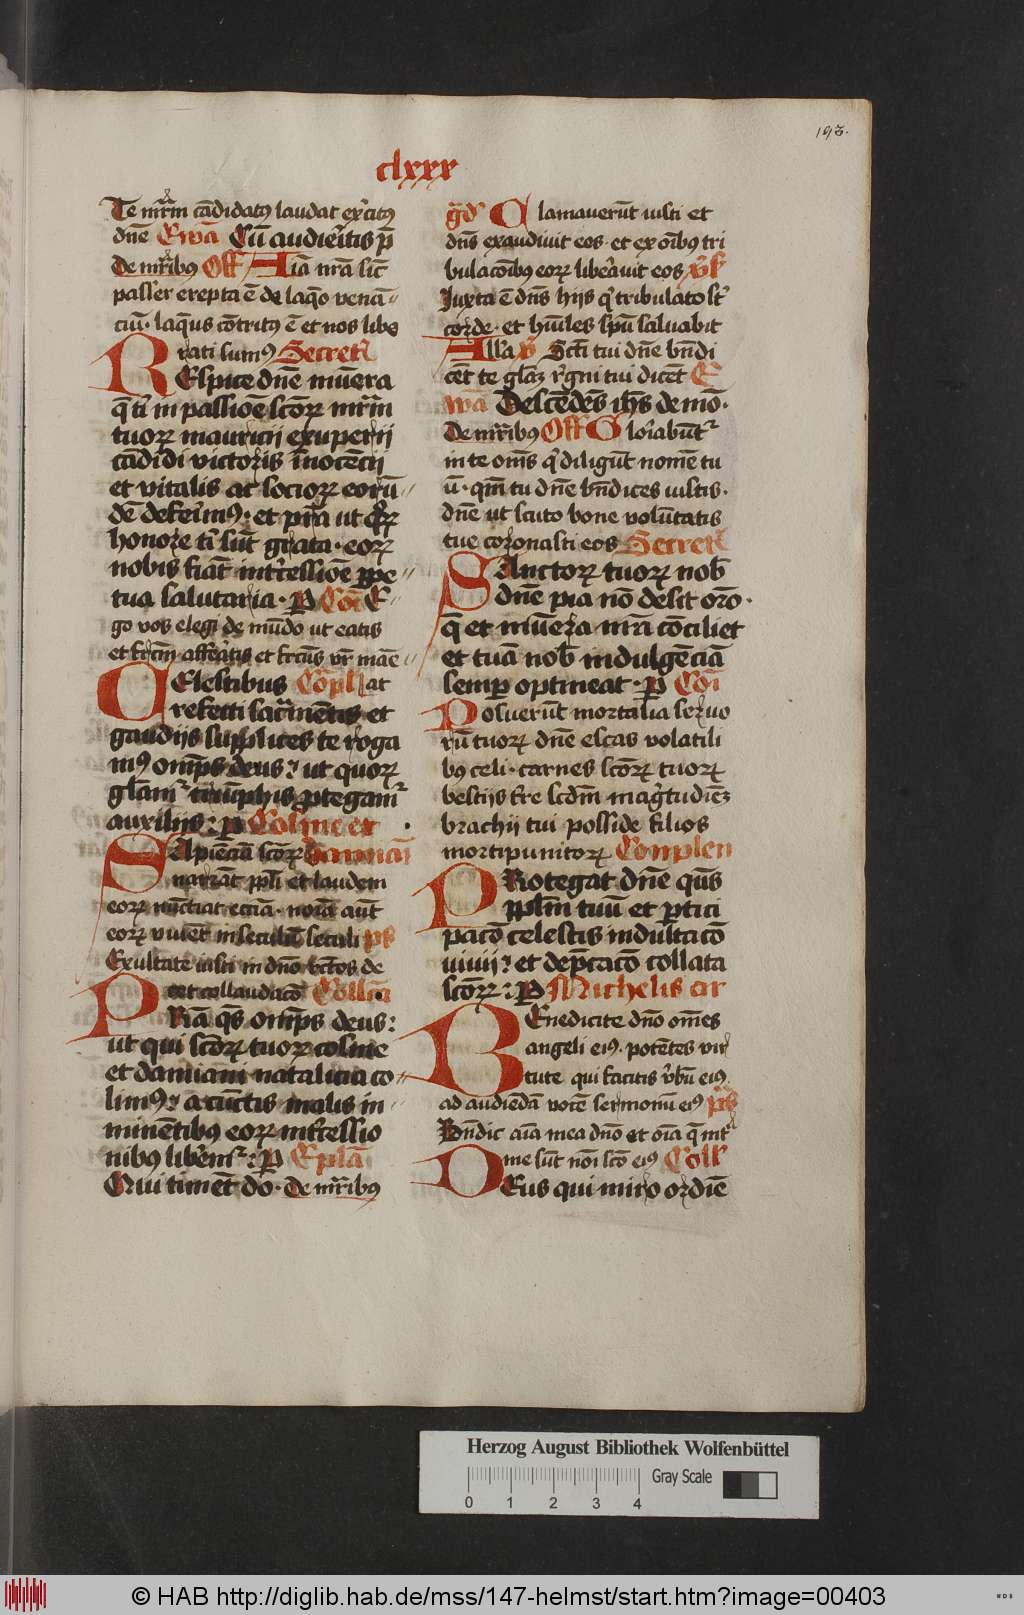 193.
clxxx
Te mr̄m cādidatꝰ laudat ex̄citꝰ
dn̄e Ewā Cū audiet̄is p̄
De mr̄ibꝰ Off Aīa nr̄a sic̄
passer erepta ē de laq̄o venā-
ciū· laq̄us cōtritꝰ ē et nos libe
rati sumꝰ Secret
REspice dn̄e mun̄era
q̄ ti in passiōe sc̄orꝝ mr̄m
tuorꝝ mauricij exuperij
cādidi victoris īnocēcij
et vitalis ac sociorꝝ eorū
dē deferimꝰ· et p̄ta ut
honore ti sūt grata· eorꝝ
nobis fiāt int̄cessiōe ꝑpe
tua salutaria· P Cōi E-
go vos elegi de mūdo ut eatis
et fructū afferatis et fructꝰ vr̄ māe
CElestibus Cōpl at
refecti sac̄mētis et
gaudijs supplices te roga
mꝰ omp̄s deus: ut quorꝝ
gl̄am triūphis ꝓtegamͬ
auxilijs: P Cosme et
SApiēciā sc̄orꝝ damiani
narrāt ppl̄i et laudem
eorꝝ nūctiat ecciā· noīa aūt
eorꝝ viuēt in seculū seculi ps
Exultate iusti in dn̄o rc̄tos de
cet collaudacō Collcā
PRa q̄s omp̄s deus:
ut qui sc̄orꝝ tuorꝝ cosme
et damiani natalicia co
limꝰ: a cūctis malis in
minētibꝰ eorꝝ int̄cessio
nibꝰ liberemͬ: P Eplā
Qui timēt dō· de mr̄ibꝰ
gͣd' Clamauerūt iusti et
dn̄s exaudiuit eos· et ex oībꝰ tri
bulacōibꝰ eorꝝ liberauit eos v̄s
Juxta ē dn̄s hijs q̄ tribulato st̄
corde· et hūiles spū saluabit
Alla v̄ Scti tui dn̄e bn̄di
cēt te gl̄aꝫ regni tui dicēt E
wā Descēdēs ih̄s de mō·
De mr̄ibꝰ Off Gloriabūtͬ
in te oms̄ q̄ diligūt nomē tu
ū· qm̄ tu dn̄e bn̄dices iustis·
dn̄e ut scuto bone volūtatis
tue coronasti eos Secret
SAnctorꝝ tuorꝝ nob̄
dn̄e pia nō desit orō·
q̄ et mun̄era nr̄a cōciliet
et tuā nob̄ indulgēciā
semꝑ optineat· P Cōi
Posuerūt mortalia seruo
rū tuorꝝ dn̄e escas volatili
bꝰ celi· carnes sc̄orꝝ tuorꝝ
bestijs tre scd̄m mag̃tudīeꝫ
brachij tui posside filios
mortipunitorꝝ Complen
PRotegat dn̄e q̄s
ppl̄m tuū et ꝑtici
pacō celestis indulta cō
viuij: et dep̄cacō collata
sc̄orꝝ: P Michelis ar
BEnedicite dn̄o om̄es
angeli eiꝰ· potētes vir
tute qui facitis v̄bū eiꝰ
ad audiēdā vocē sermonū eiꝰ p̄s
Bn̄dic aīa mea dn̄o et oīa q̄ int̄
Dme sūt noī sc̄o eiꝰ Coll
Eus qui miro ordīe
Herzog August Bibliothek Wolfenbüttel
0 1 2 3 4 Gray Scale
© HAB http://diglib.hab.de/mss/147-helmst/start.htm?image=00403